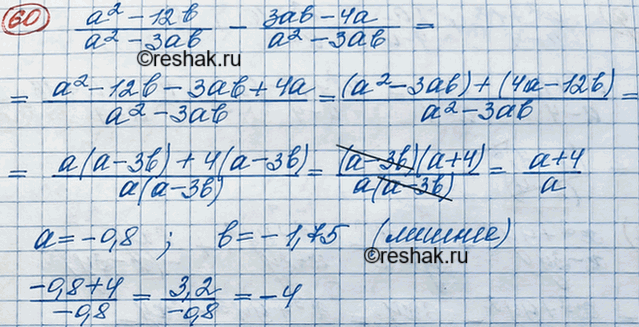 60 (a² - 12b)/(a² - 3ab) - (3ab - 4a)/(a² - 3ab) =
©reshak.ru
= (a² - 12b - 3ab + 4a)/(a² - 3ab) = ((a² - 3ab) + (4a - 12b))/(a² - 3ab) =
= (a(a - 3b) + 4(a - 3b))/(a(a - 3b)) = ((a - 3b)(a + 4))/(a(a - 3b)) = (a + 4)/a
a = -0,8 ; b = -1,75 (лишнее)
©reshak.ru
(-0,8 + 4)/(-0,8) = 3,2/(-0,8) = -4